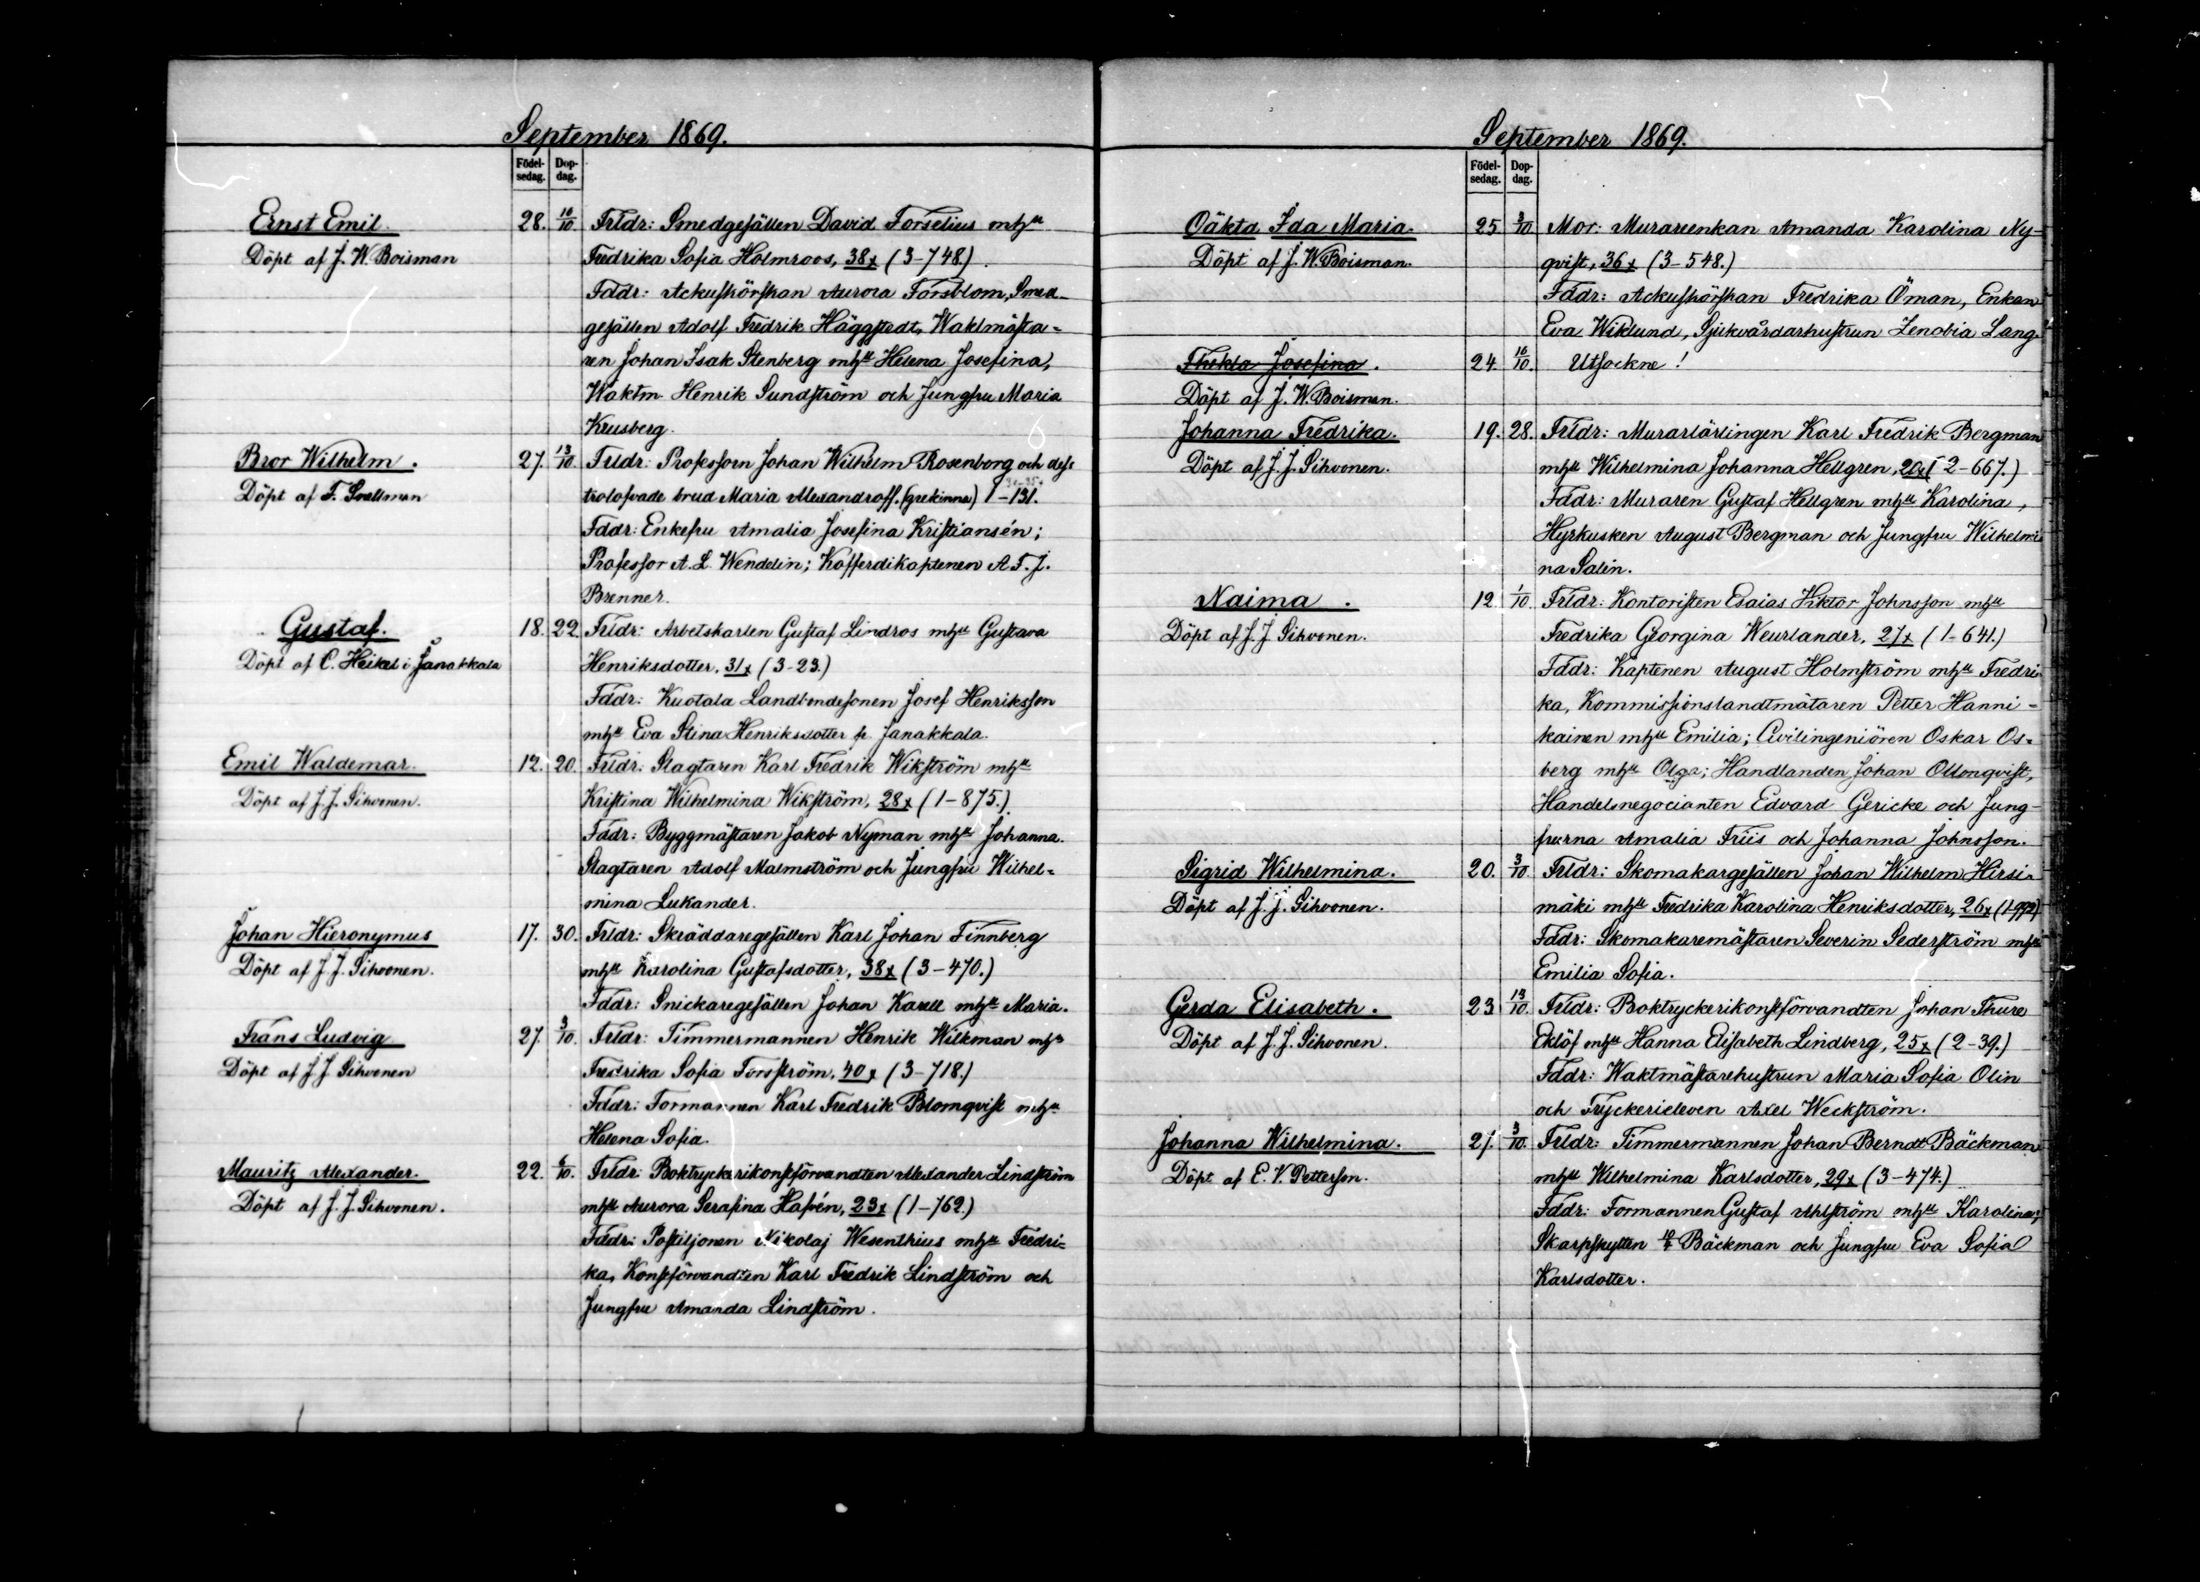 September 1869.
Födel-
sedag.
Dop-
dag.
Ernst Emil. 28. 10/10 Frldr: Smedgesällen David Forselius mhu
Döpt af J. W. Boisman Fredrika Sofia Holmroos, 38 x (3-748).
Fddr: Ackuschörskan Aurora Forsblom, Smed-
gesällen Adolf Fredrik Häggstedt, Waktmästa-
ren Johan Isak Stenberg mhu Helena Josefina,
Waktm. Henrik Sundström och Jungfru Maria
Krusberg.
Bror Wilhelm. 27. 13/10 Frldr: Professorn Johan Wilhelm Rosenborg och dess
Döpt af F. Snellman trolofvade brud Maria Alexandroff. (grekinna) 1-131.
Fddr: Enkefru Amalia Josefina Kristiansén;
Professor A. L. Wendelin; Kofferdikaptenen A. F. J.
Brenner.
Gustaf. 18. 22. Frldr: Arbetskarlen Gustaf Lindros mhu Gustava
Döpt af C. Heikel i Janakkala Henriksdotter, 31 x (3-23.)
Fddr: Kuotala Landbondesonen Josef Henriksson
mhu Eva Stina Henriksdotter fr. Janakkala.
Emil Waldemar. 12. 20. Frldr: Slagtaren Karl Fredrik Wikström mhu
Döpt af J. J. Sihvonen. Kristina Wilhelmina Wikström, 28 x (1-875.)
Fddr: Byggmästaren Jakob Nyman mhu Johanna.
Slagtaren Adolf Malmström och Jungfru Wilhel-
mina Lukander.
Johan Hieronymus 17. 30. Frldr: Skräddaregesällen Karl Johan Finnberg
Döpt af J. J. Sihvonen. mhu Karolina Gustafsdotter, 38 x (3-470.)
Fddr: Snickaregesällen Johan Karell mhu Maria.
Frans Ludvig 27. 3/10. Frldr: Timmermannen Henrik Wilkman mhu
Döpt af J. J. Sihvonen Fredrika Sofia Forsström, 40 x (3-718.)
Fddr: Formannen Karl Fredrik Blomqvist mhu
Helena Sofia.
Mauritz Alexander. 22. /10. Frldr: Boktryckerikonstförvandten Alexander Lindström
Döpt af J. J. Sihvonen. mhu Aurora Serafina Hafvén, 23 x (1-762.)
Fddr: Postiljonen Nikolaj Wesenthius mhu Fredri-
ka, Konstförvandten Karl Fredrik Lindström och
Jungfru Amanda Lindström.
September 1869.
Födel-
sedag.
Dop-
dag.
Oäkta Ida Maria. 25 3/10 Mor: Murareenkan Amanda Karolina Ny-
Döpt af J. W. Boisman. qvist, 36 x (3-548.)
Fddr: Ackuschörskan Fredrika Öman, Enkan
Eva Wiklund, Sjukvårdarhustrun Zenobia Lang.
Thekla Josefina. 24. 10/10. Utsockne!
Döpt af J. W. Boisman.
Johanna Fredrika. 19. 28. Frldr: Murarlärlingen Karl Fredrik Bergman
Döpt af J. J. Sihvonen. mhu Wilhelmina Johanna Hellgren, 20 x (2-667.)
Fddr: Muraren Gustaf Hellgren mhu Karolina,
Hyrkusken August Bergman och Jungfru Wilhelmi-
na Salin.
Naima. 12. 1/10 Frldr: Kontoristen Esaias Viktor Johnsson mhu
Döpt af J. J. Sihvonen. Fredrika Georgina Weurlander, 27 x (1-641.)
Fddr: Kaptenen August Holmström mhu Fredri-
ka, Kommissionslandtmätaren Petter Hanni-
kainen mhu Emilia; Civilingeniören Oskar Os-
berg mhu Olga; Handlanden Johan Ollonqvist,
Handelsnegocianten Edvard Gericke och Jung-
frurna Amalia Friis och Johanna Johnsson.
Sigrid Wilhelmina. 20. 3/10 Frldr: Skomakargesällen Johan Wilhelm Hirsi-
Döpt af J. J. Sihvonen. mäki mhu Fredrika Karolina Henriksdotter, 26 x
Fddr: Skomakuremästaren Severin Sederström mhu
Emilia Sofia.
Gerda Elisabeth. 23 13/10. Frldr: Boktryckerikonstförvandten Johan Thure
Döpt af J. J. Sihvonen. Eklöf mhu Hanna Elisabeth Lindberg, 25 x (2-39.)
Fddr: Waktmästarehustrun Maria Sofia Olin
och Tryckerieleven Axel Weckström.
Johanna Wilhelmina. 27. 3/10. Frldr: Timmermannen Johan Berndt Bäckman
Döpt af E. V. Petterson. mhu Wilhelmina Karlsdotter, 29 x (3-474.)
Fddr: Formannen Gustaf Ahlström mhu Karolina;
Skarpskytten Bäckman och Jungfru Eva Sofia
Karlsdotter.